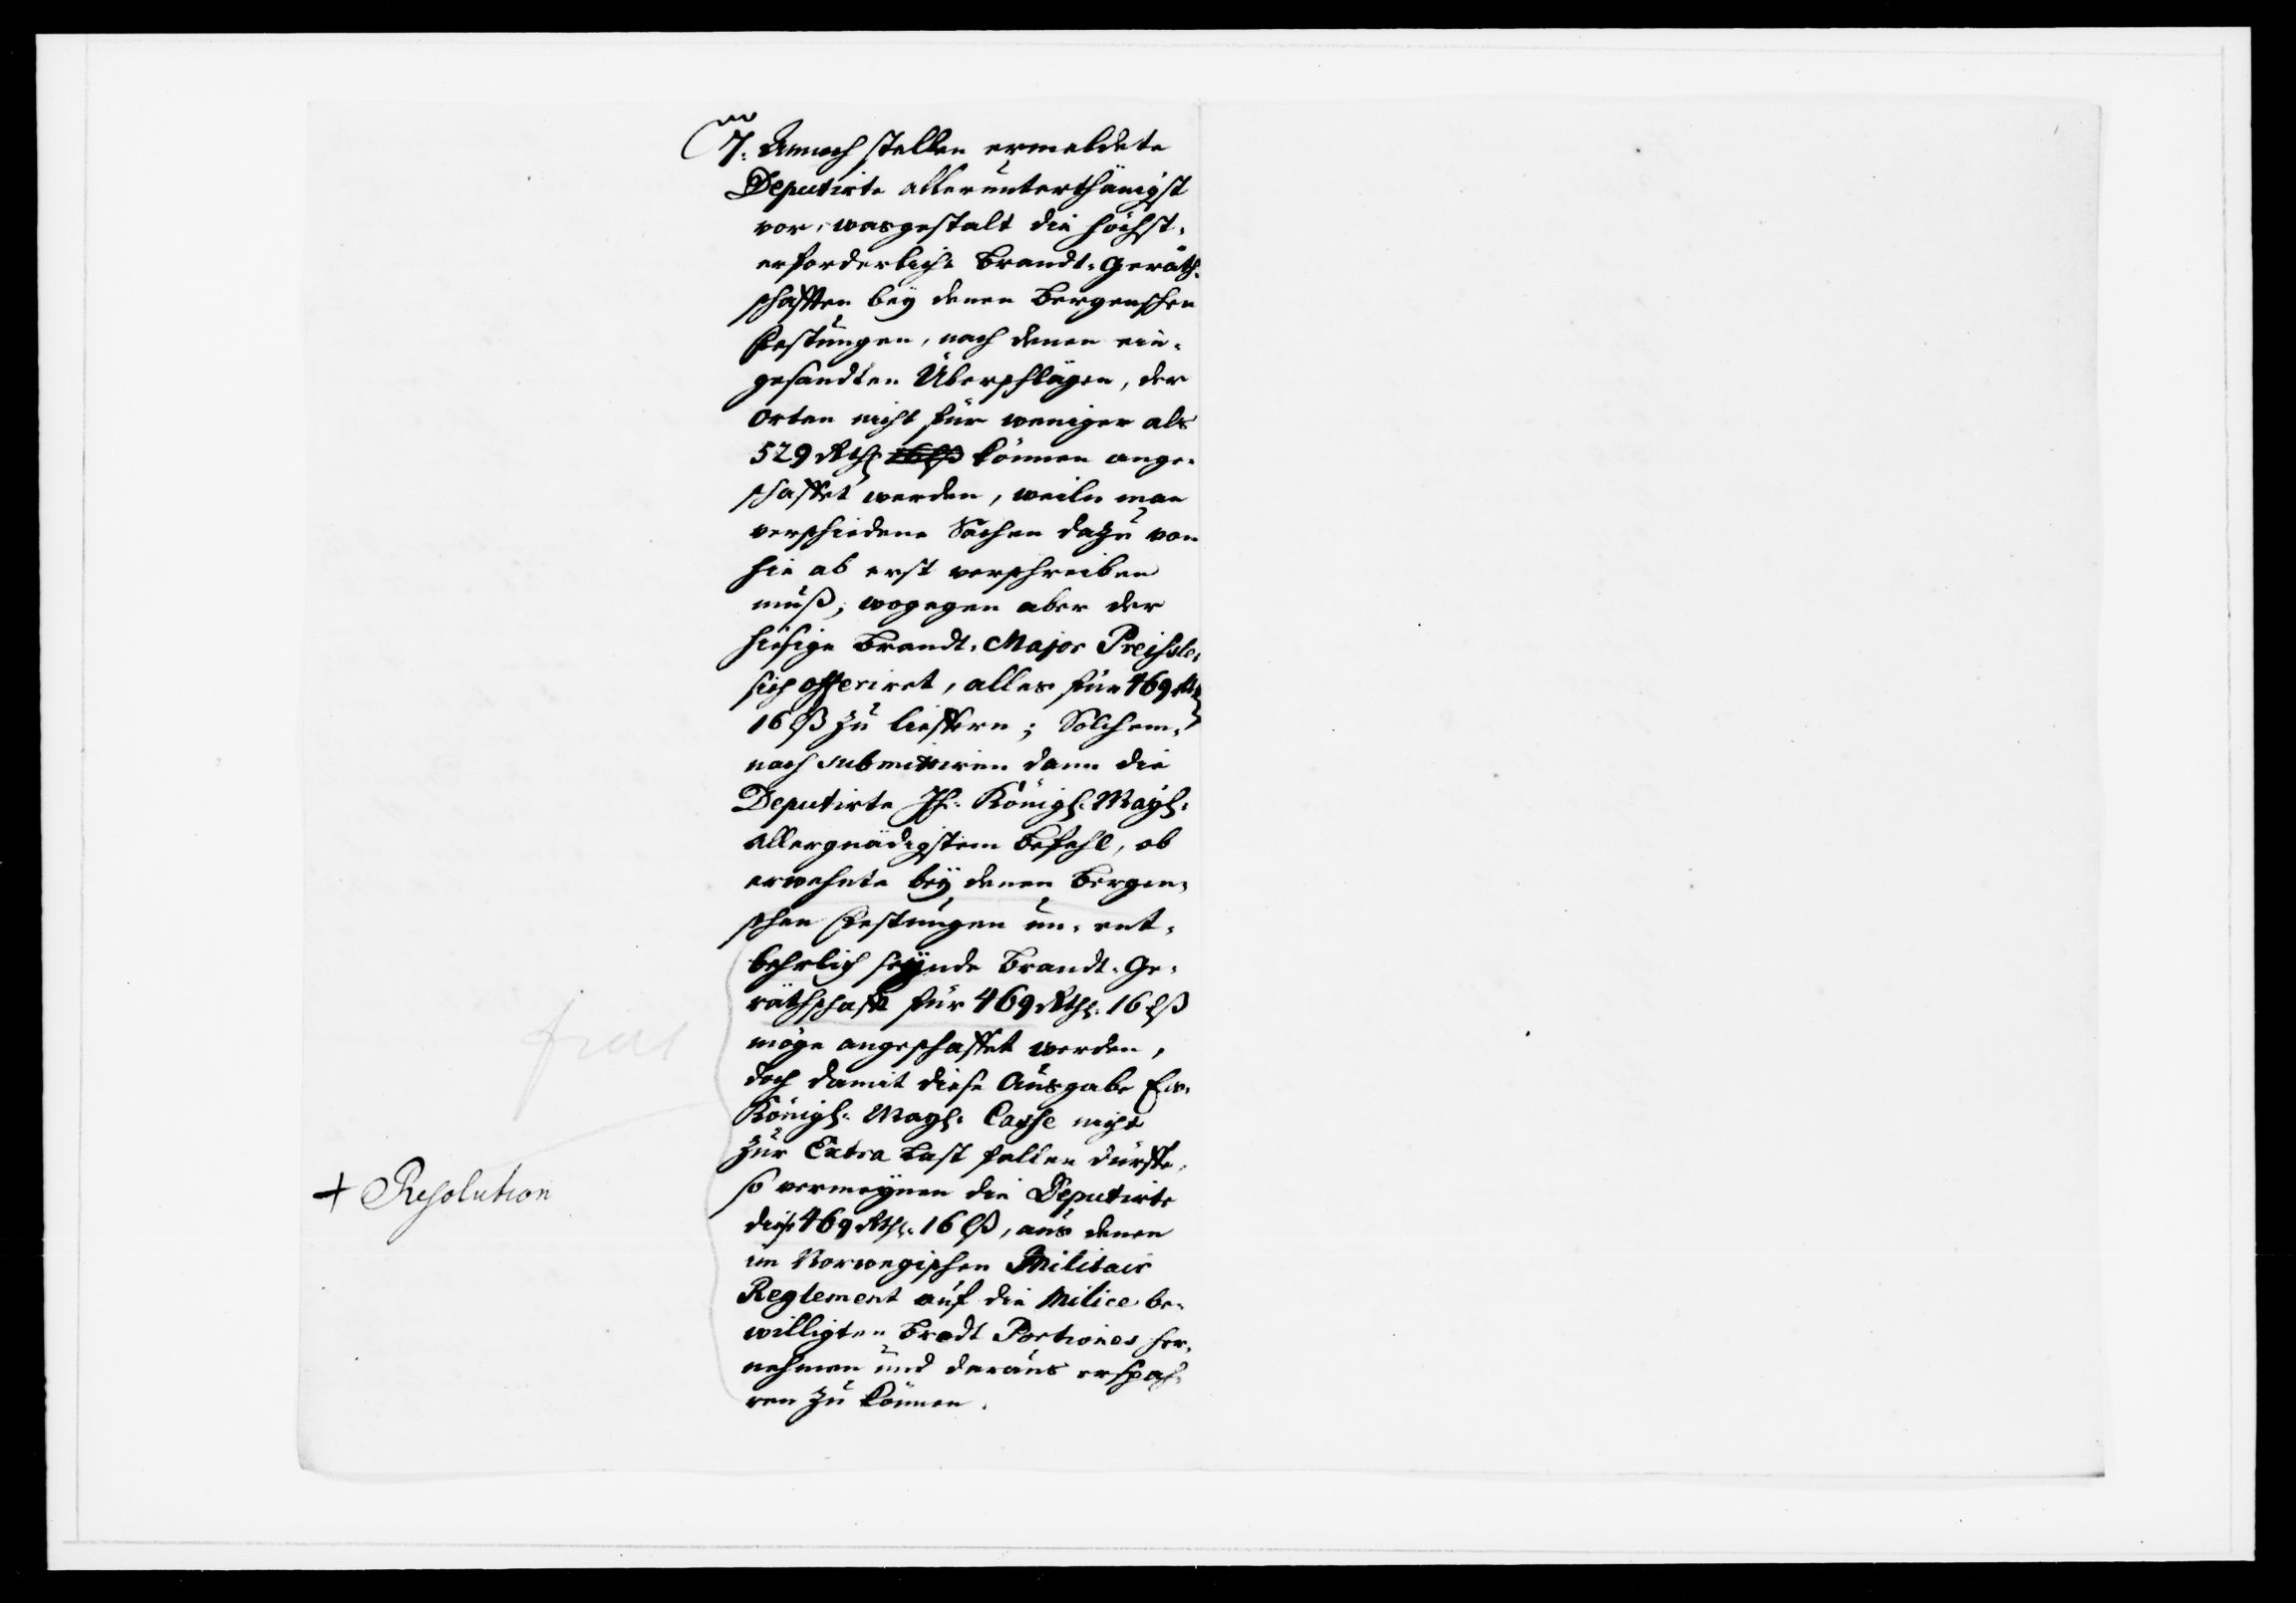 7. Annoch stellen ermeldete
Deputirte allerunterthänigst
vor, wasgestalt die höchst-
erforderliche Brandt-Geräth-
schafften bey denen Bergenschen
Festungen, nach denen ein-
gesandten Überschlägen, der
Orten nicht für weniger als
529 Rthl können ange-
schaffet werden, weiln man
verschiedene Sachen dazu von
hie ab erst verschreiben
muß, wogegen aber der
hiesige Brandt-Major Preissler
sich offeriret, alles für 469 Rthl
16 lß zu lieffern; Solchem-
nach submittiren dann die
Deputirte Ih. Königl. Mayt.
allergnädigstem Befehl, ob
erwehnte bey denen Bergen-
schen Festungen un-ent-
behrlich seynde Brandt-Ge-
räthschafft für 469 Rthl. 16 lß
möge angeschaffet werden,
doch damit diese Ausgabe Ew.
Königl. Mayt. Casse nicht
zur Extra Last fallen dürffte,
so vermeynen die Deputirte
diese 469 Rthl. 16 lß, aus denen
im Norwegischen Militair
Reglement auf die Milice be-
willigten Brodt Portiones her-
nehmen und daraus erspah-
ren zu können.
+ Resolution